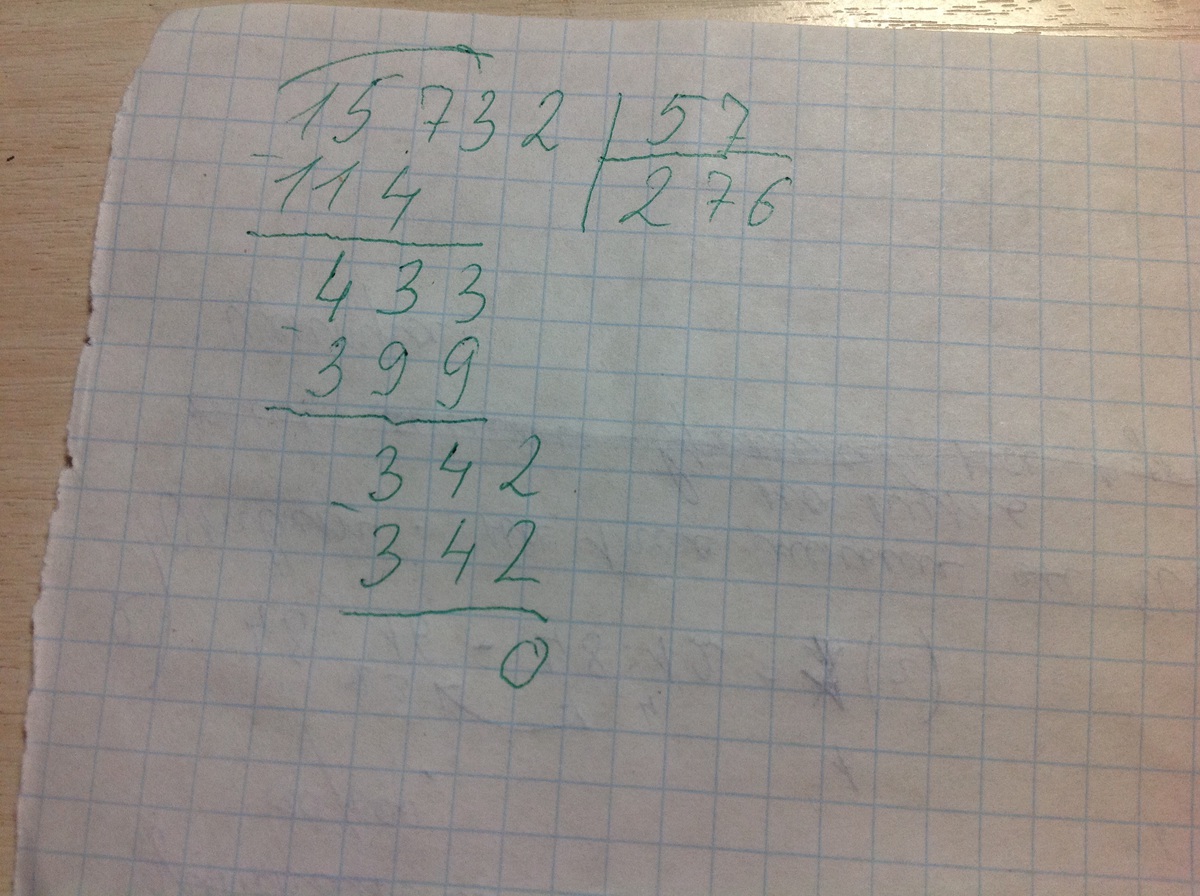 15732 | 57
- 114 | 276
433
- 399
342
- 342
0